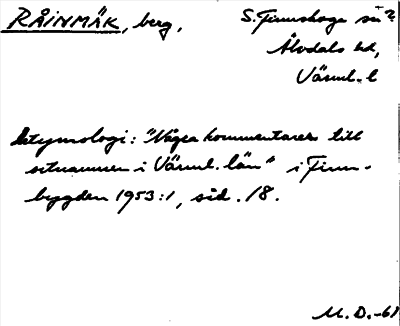 RÅINMÄK, berg, S. Finnskoga sn?
Älvdals hd,
Värml. l
Etymologi: "Några kommentarer till
ortnamnen i Värml. län" i Finn-
bygden 1953:1, sid. 18.
M. D. -61